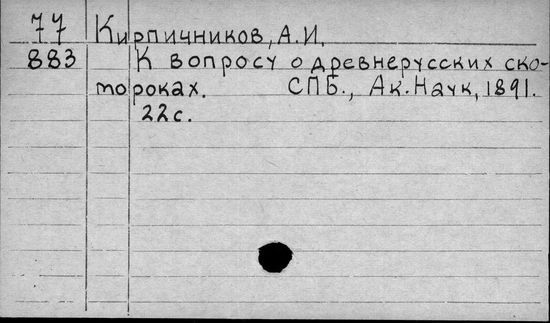 77 Кирпичников, А.И.
883 К вопросу о древнерусских ско-
морохах. СПБ., Ак. Наук, 1891.
22с.